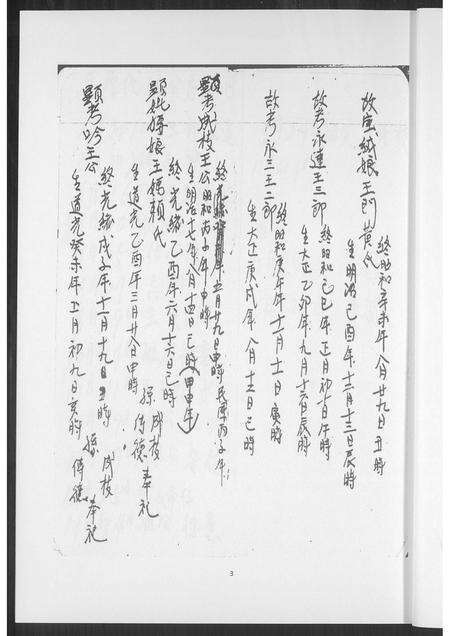 故室絨娘王門黃氏
終昭和辛未年八月廿九日丑時
生明治己酉年十二月十三日辰時
故考永連王三郎
終昭和己巳年正月初十日午時
生大正乙卯年九月十六日辰時
故考永三王二郎
終昭和庚午年十一月十一日寅時
生大正庚戌年八月十五日巳時
顯考成枝王公
終昭和丙子年五月廿九日申時民原丙子年
生明治十七年八月十四日巳時(甲申年)
顯妣 娘王媽賴氏
終光緒乙酉年六月十六日巳時
生道光乙酉年三月廿八日申時
孫成枝
傳德
奉祀
顯考吟王公
終光緒戊子年十二月十九日丑時
生道光癸未年五月初九日亥時
孫成枝
傳德
奉祀
3